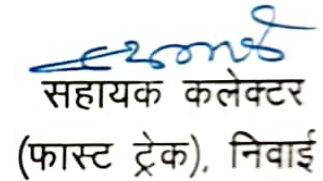 सहायक कलेक्टर
(फास्ट ट्रेक), निवाई